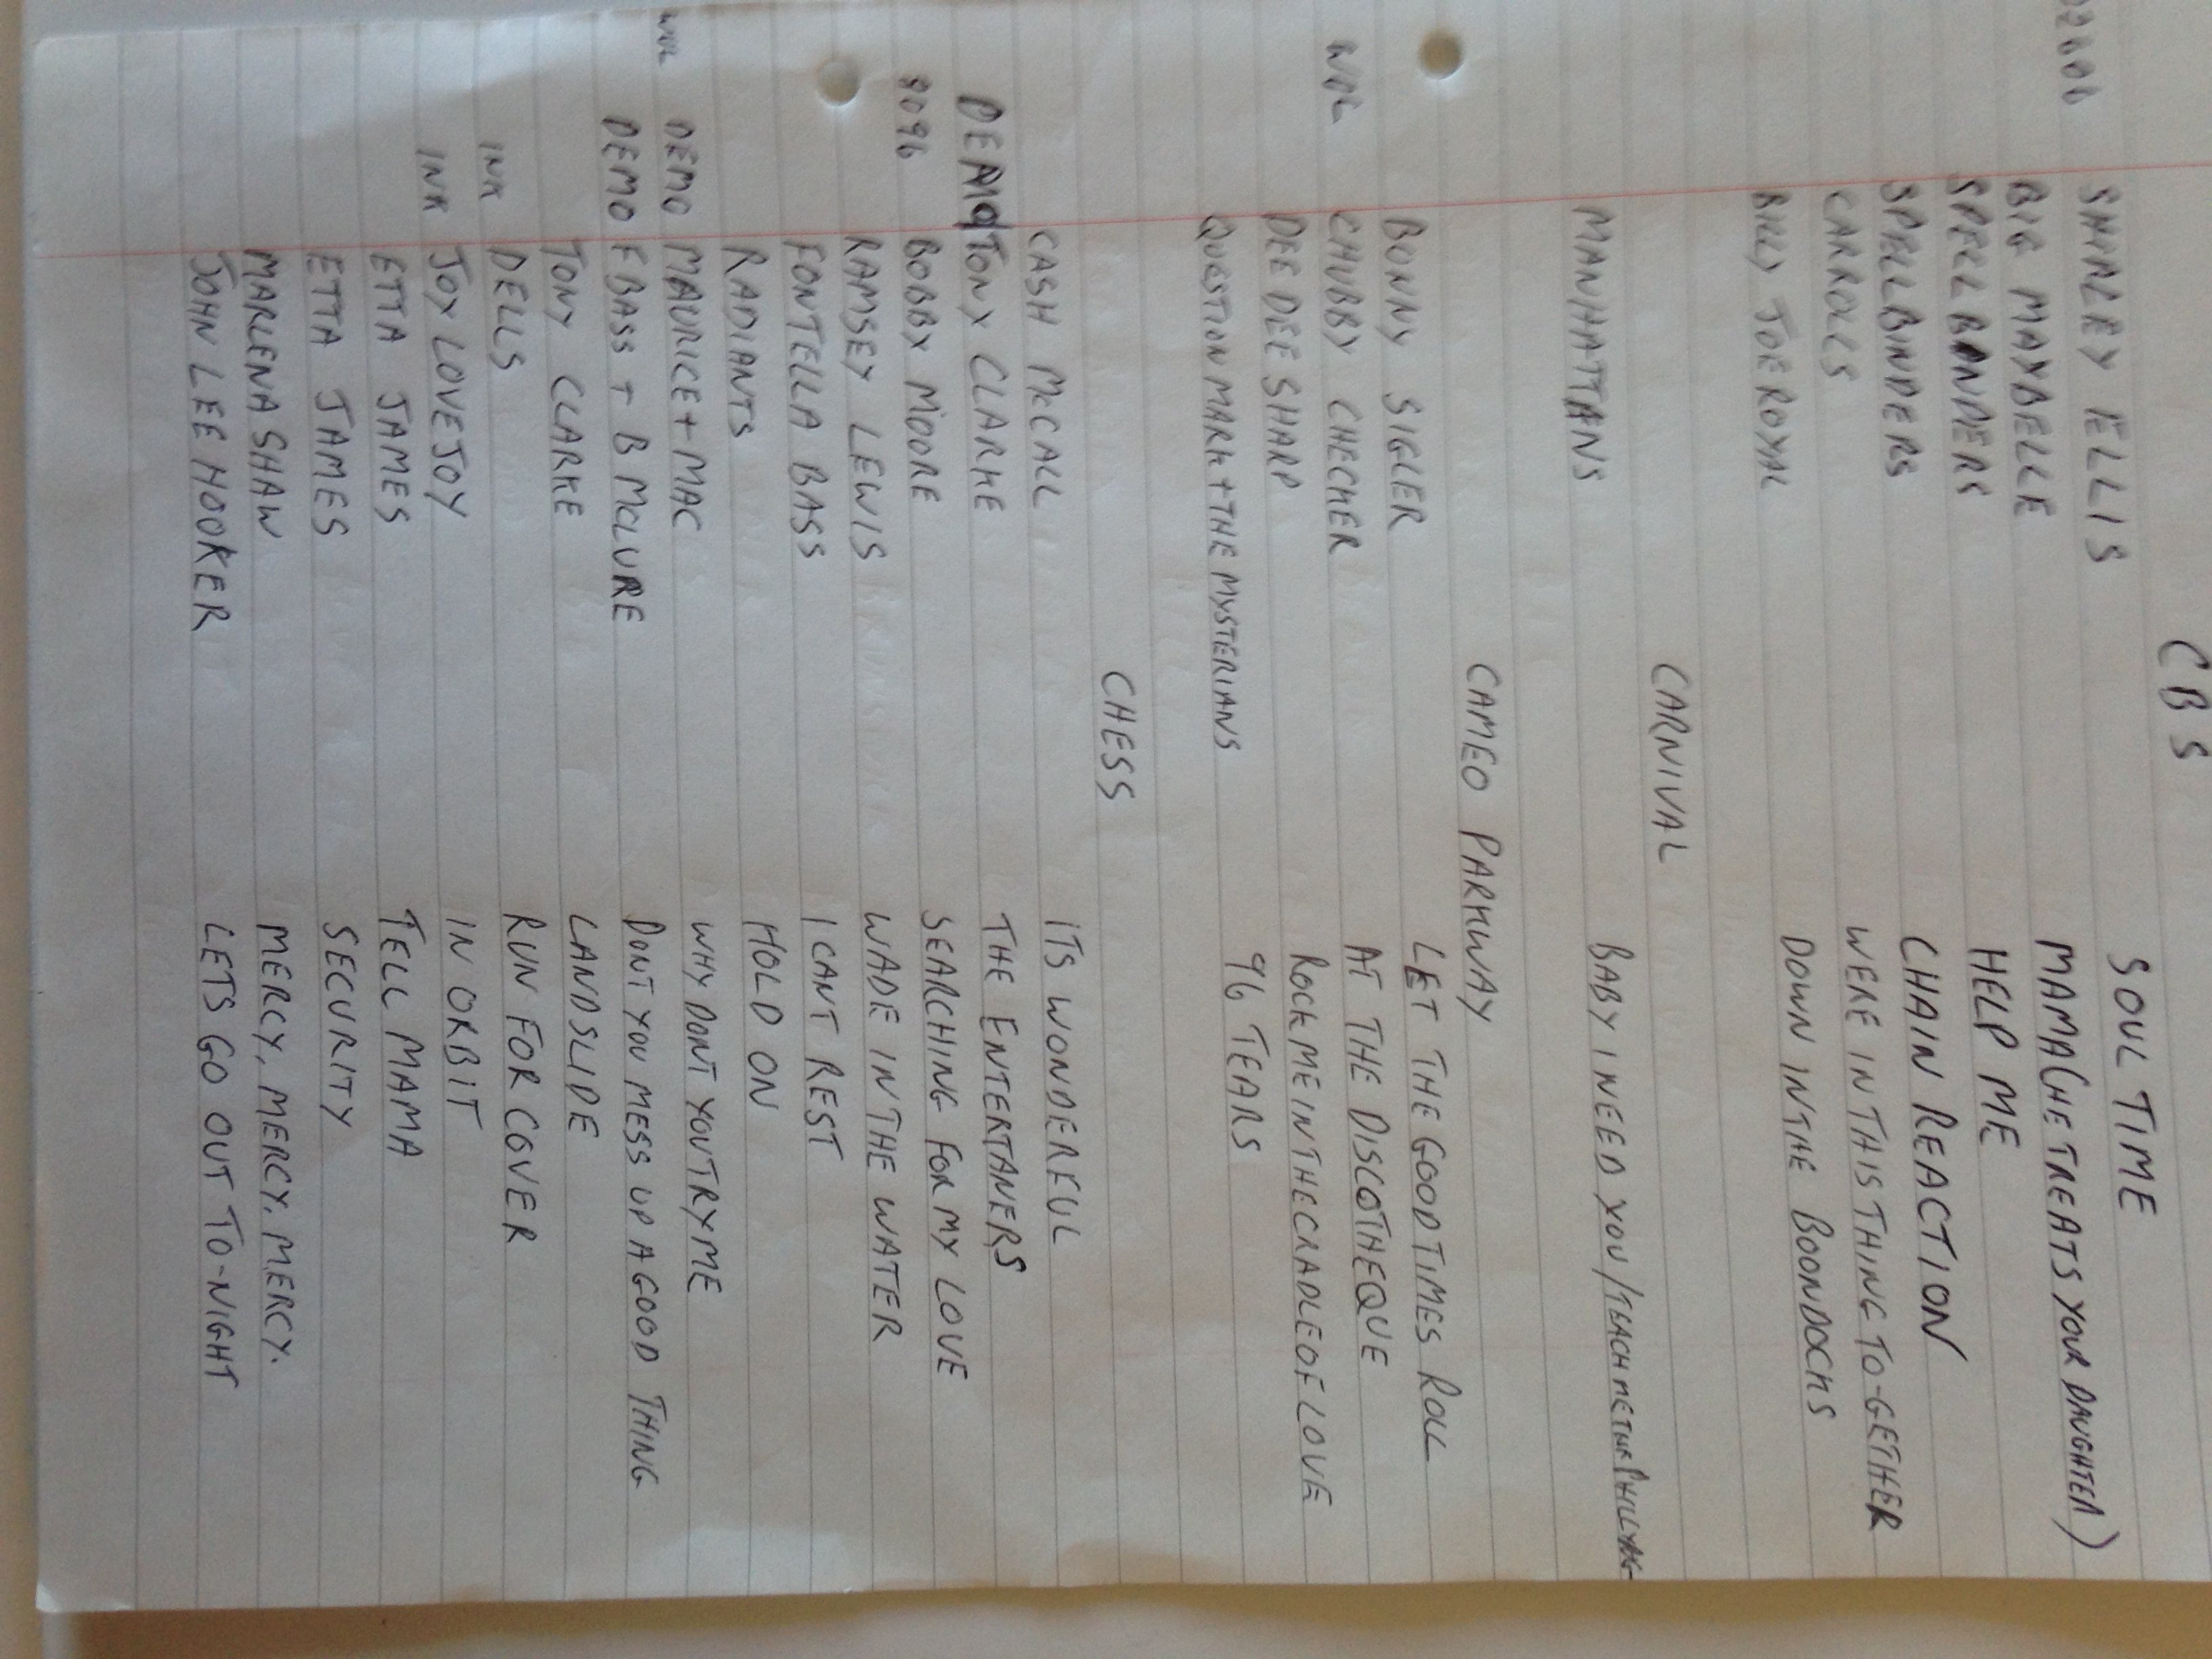 CBS
202606 SHIRLEY ELLIS SOUL TIME
BIG MAYBELLE MAMA (HE TREATS YOUR DAUGHTER)
SPELLBANDERS HELP ME
SPELLBINDERS CHAIN REACTION
CARROLLS WERE IN THIS THING TO-GETHER
BILLY JOE ROYAL DOWN IN THE BOONDOCKS
CARNIVAL
MANHATTANS BABY I NEED YOU / TEACH ME THE PHILLYDOG
CAMEO PARKWAY
BONNY SIGLER LET THE GOOD TIMES ROLL
WOL CHUBBY CHECKER AT THE DISCOTHEQUE
DEE DEE SHARP ROCK ME IN THE CRADLE OF LOVE
QUESTION MARK + THE MYSTERIANS 96 TEARS
CHESS
CASH McCALL ITS WONDERFUL
DEMO TONY CLARKE THE ENTERTANERS
8096 BOBBY MOORE SEARCHING FOR MY LOVE
RAMSEY LEWIS WADE IN THE WATER
FONTELLA BASS I CANT REST
RADIANTS HOLD ON
WOL DEMO MAURICE + MAC WHY DONT YOU TRY ME
DEMO F BASS + B MCLURE DONT YOU MESS UP A GOOD THING
TONY CLARKE LANDSLIDE
INK DELLS RUN FOR COVER
INK JOY LOVEJOY IN ORBIT
ETTA JAMES TELL MAMA
ETTA JAMES SECURITY
MARLENA SHAW MERCY, MERCY, MERCY.
JOHN LEE HOOKER LETS GO OUT TO-NIGHT